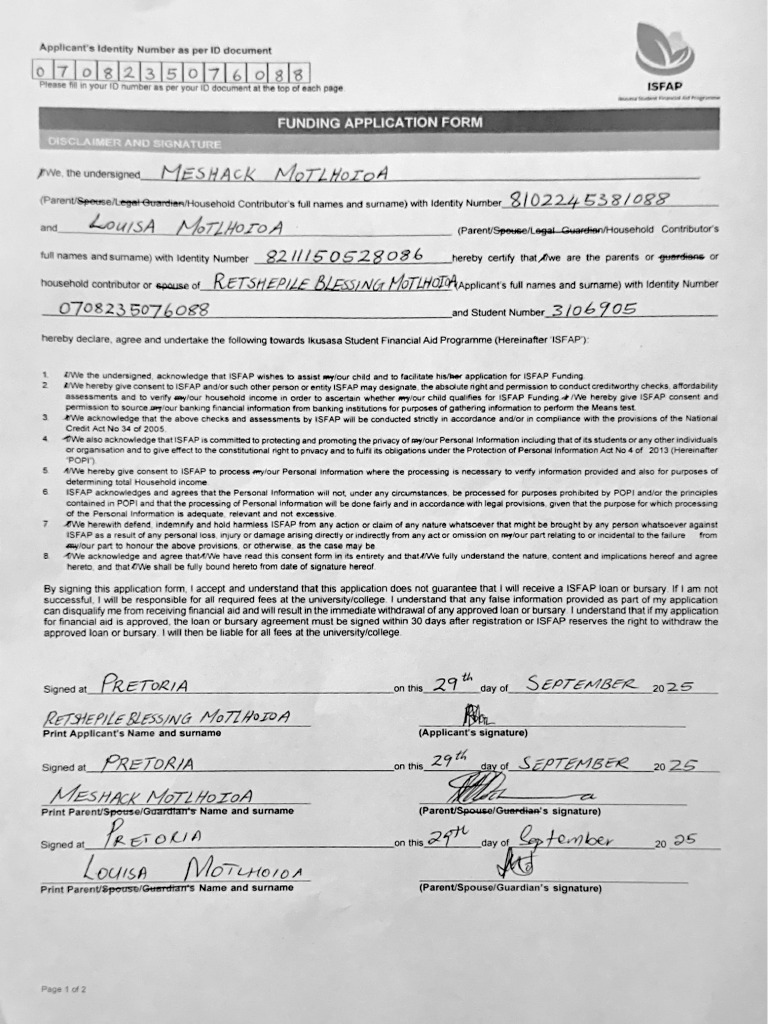 Applicant's Identity Number as per ID document
0708235076088
Please fill in your ID number as per your ID document at the top of each page.
ISFAP
Ikusasa Student Financial Aid Programme
FUNDING APPLICATION FORM
DISCLAIMER AND SIGNATURE
I/We, the undersigned MESHACK MOTLHOIOA
(Parent/Spouse/Legal Guardian/Household Contributor's full names and surname) with Identity Number 8102245381088
and LOUISA MOTLHOIOA (Parent/Spouse/Legal Guardian/Household Contributor's
full names and surname) with Identity Number 8211150528086 hereby certify that I/we are the parents or guardians or
household contributor or spouse of RETSHEPILE BLESSING MOTLHOIOA (Applicant's full names and surname) with Identity Number
0708235076088 and Student Number 3106905
hereby declare, agree and undertake the following towards Ikusasa Student Financial Aid Programme (Hereinafter 'ISFAP'):
1. I/We the undersigned, acknowledge that ISFAP wishes to assist my/our child and to facilitate his/her application for ISFAP Funding.
2. I/We hereby give consent to ISFAP and/or such other person or entity ISFAP may designate, the absolute right and permission to conduct creditworthy checks, affordability
assessments and to verify my/our household income in order to ascertain whether my/our child qualifies for ISFAP Funding. I/We hereby give ISFAP consent and
permission to source my/our banking financial information from banking institutions for purposes of gathering information to perform the Means test.
3. I/We acknowledge that the above checks and assessments by ISFAP will be conducted strictly in accordance and/or in compliance with the provisions of the National
Credit Act No 34 of 2005.
4. I/We also acknowledge that ISFAP is committed to protecting and promoting the privacy of my/our Personal Information including that of its students or any other individuals
or organisation and to give effect to the constitutional right to privacy and to fulfil its obligations under the Protection of Personal Information Act No 4 of 2013 (Hereinafter
"POPI").
5. I/We hereby give consent to ISFAP to process my/our Personal Information where the processing is necessary to verify information provided and also for purposes of
determining total Household income.
6. ISFAP acknowledges and agrees that the Personal Information will not, under any circumstances, be processed for purposes prohibited by POPI and/or the principles
contained in POPI and that the processing of Personal Information will be done fairly and in accordance with legal provisions, given that the purpose for which processing
of the Personal Information is adequate, relevant and not excessive.
7. I/We herewith defend, indemnify and hold harmless ISFAP from any action or claim of any nature whatsoever that might be brought by any person whatsoever against
ISFAP as a result of any personal loss, injury or damage arising directly or indirectly from any act or omission on my/our part relating to or incidental to the failure from
my/our part to honour the above provisions, or otherwise, as the case may be
8. I/We acknowledge and agree that I/We have read this consent form in its entirety and that I/We fully understand the nature, content and implications hereof and agree
hereto, and that I/We shall be fully bound hereto from date of signature hereof.
By signing this application form, I accept and understand that this application does not guarantee that I will receive a ISFAP loan or bursary. If I am not
successful, I will be responsible for all required fees at the university/college. I understand that any false information provided as part of my application
can disqualify me from receiving financial aid and will result in the immediate withdrawal of any approved loan or bursary. I understand that if my application
for financial aid is approved, the loan or bursary agreement must be signed within 30 days after registration or ISFAP reserves the right to withdraw the
approved loan or bursary. I will then be liable for all fees at the university/college.
Signed at PRETORIA on this 29th day of SEPTEMBER 2025
RETSHEPILE BLESSING MOTLHOIOA
Print Applicant's Name and surname (Applicant's signature)
Signed at PRETORIA on this 29th day of SEPTEMBER 2025
MESHACK MOTLHOIOA
Print Parent/Spouse/Guardian's Name and surname (Parent/Spouse/Guardian's signature)
Signed at PRETORIA on this 29th day of September 2025
LOUISA MOTLHOIOA
Print Parent/Spouse/Guardian's Name and surname (Parent/Spouse/Guardian's signature)
Page 1 of 2